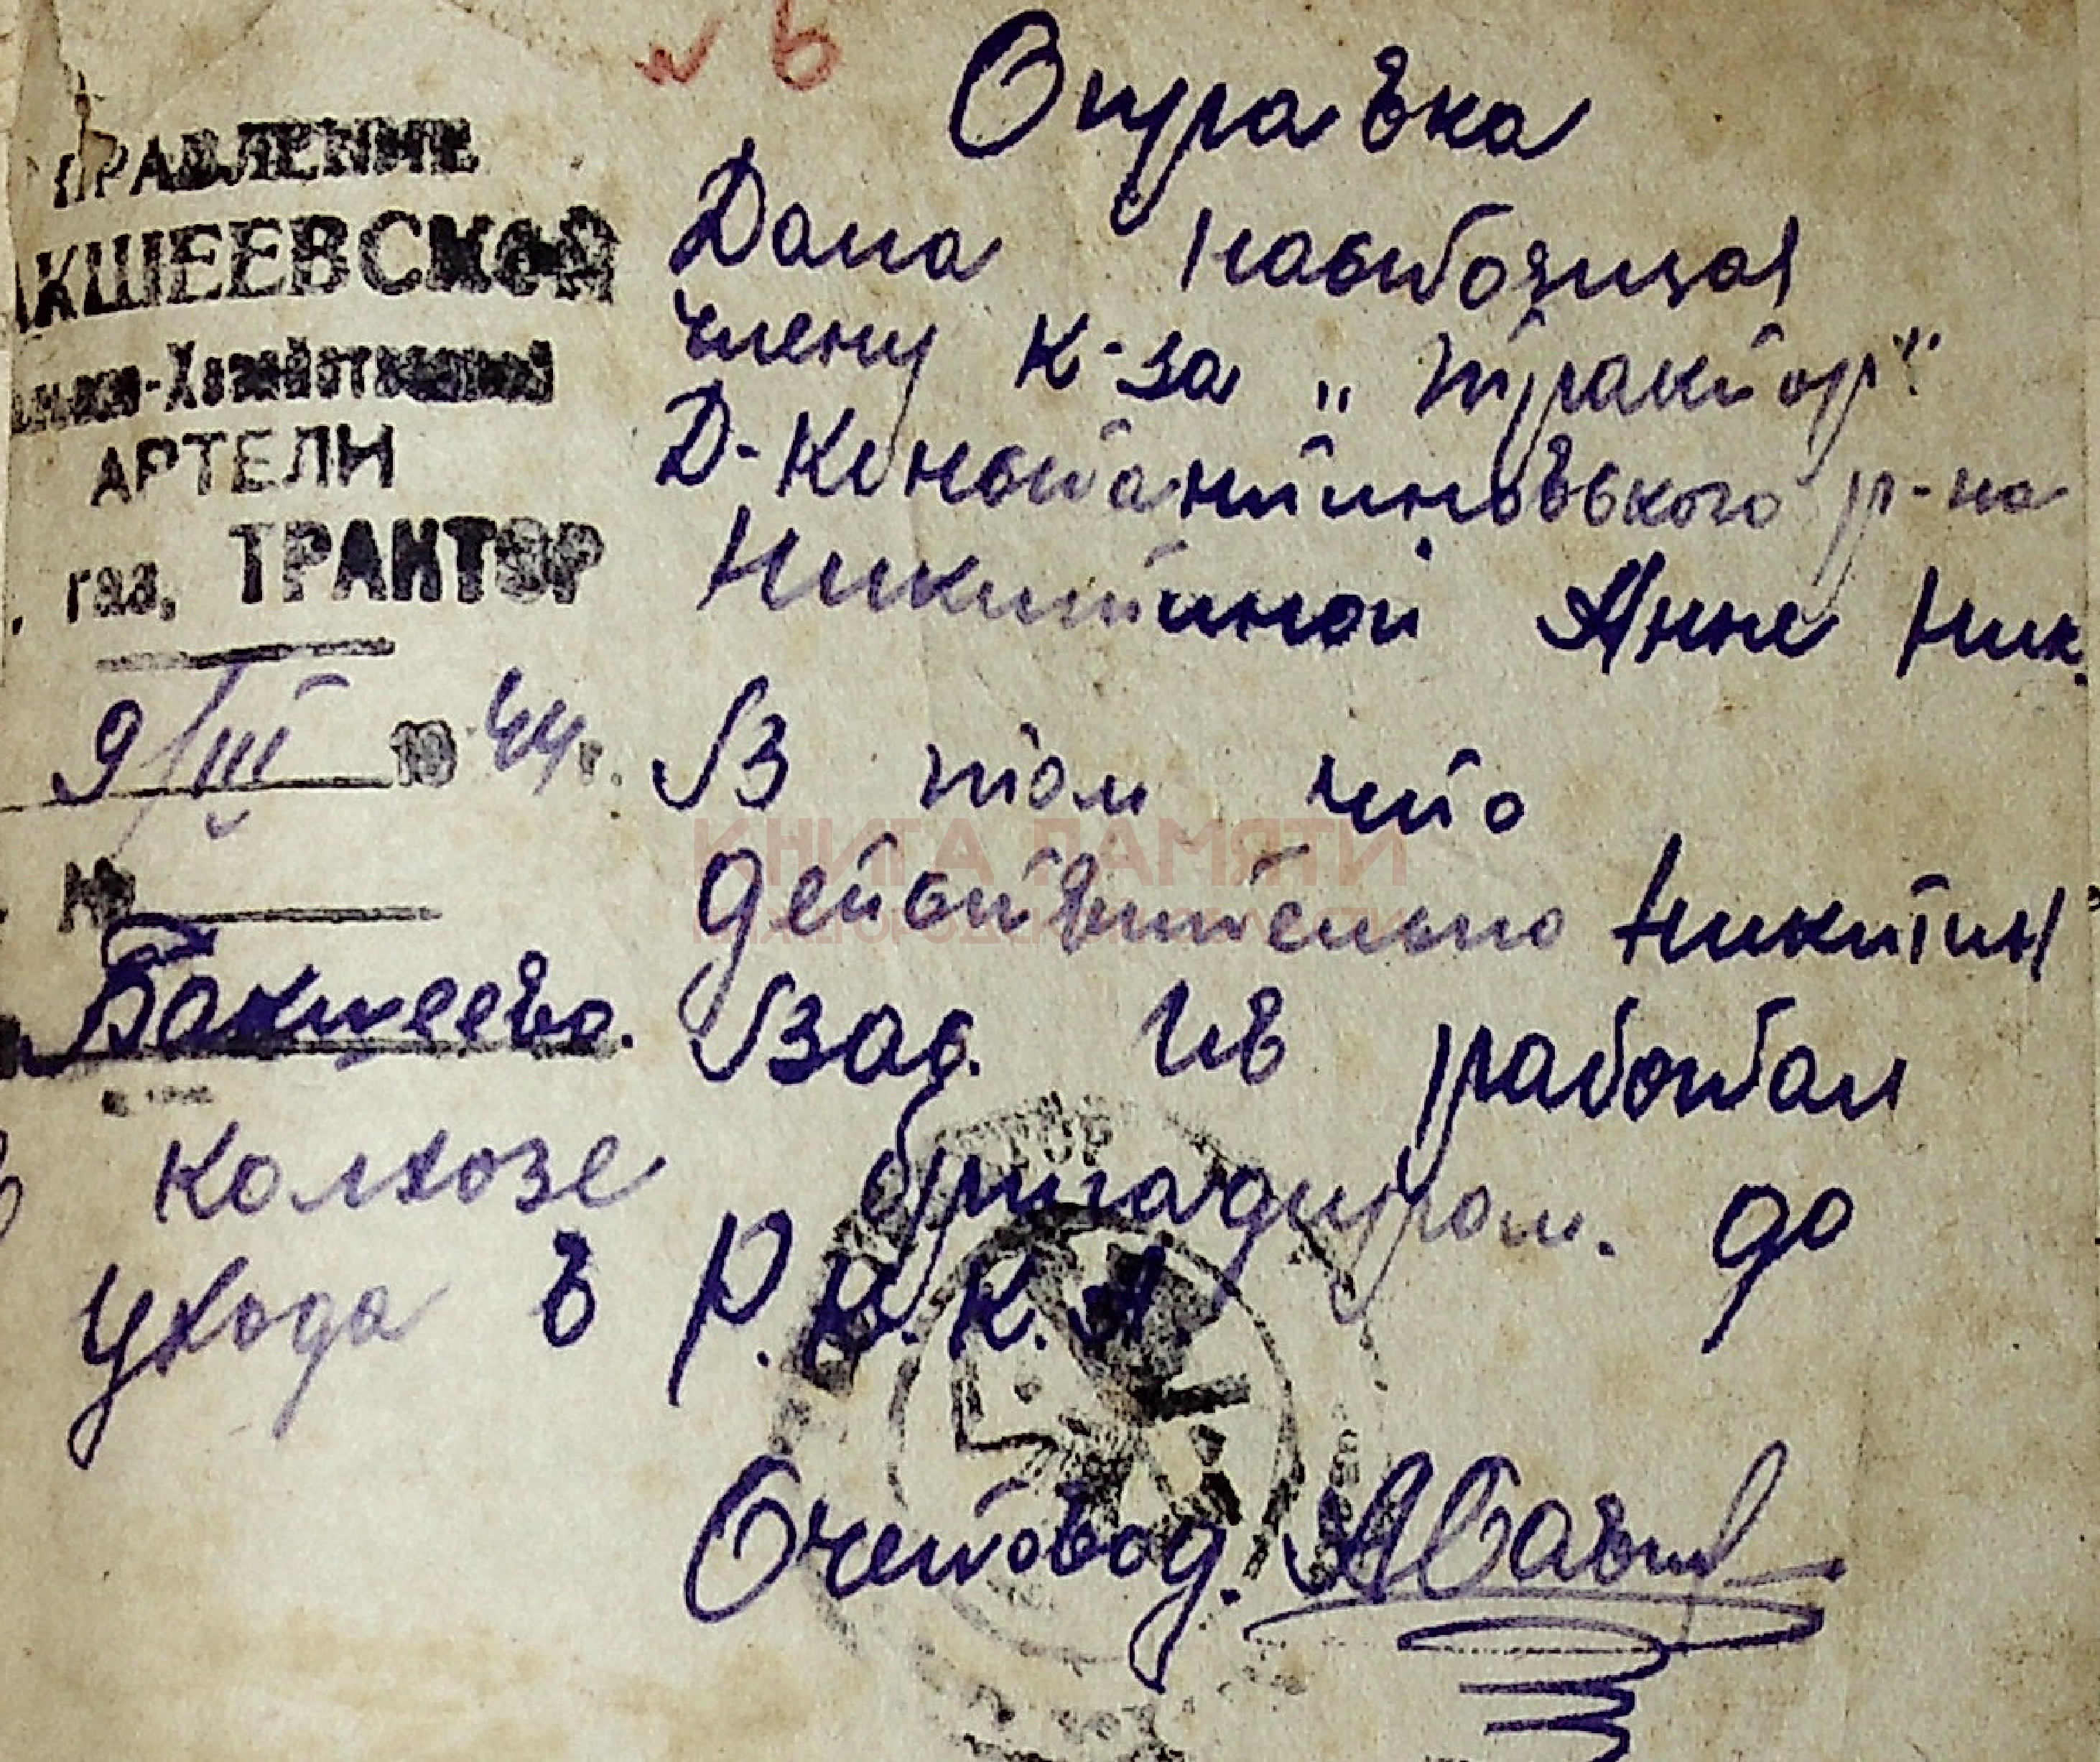 № 6
Справка
ПРАВЛЕНИЕ
АКШЕЕВСКОЙ
Хозяйственной
АРТЕЛИ
газ, ТРАКТОР
9/III 1944 г.
№
Бакшеево.
Дана настоящая
члену к-за „Трактор"
Д-Константиновского р-на
Никитиной Анне Ник.
В том что
действительно Никитин
Вас. Ив работал
в колхозе бригадиром. до
ухода в Р.К.К.А.
Счетовод.
КНИГА ПАМЯТИ
НИЖЕГОРОДСКОЙ ОБЛАСТИ